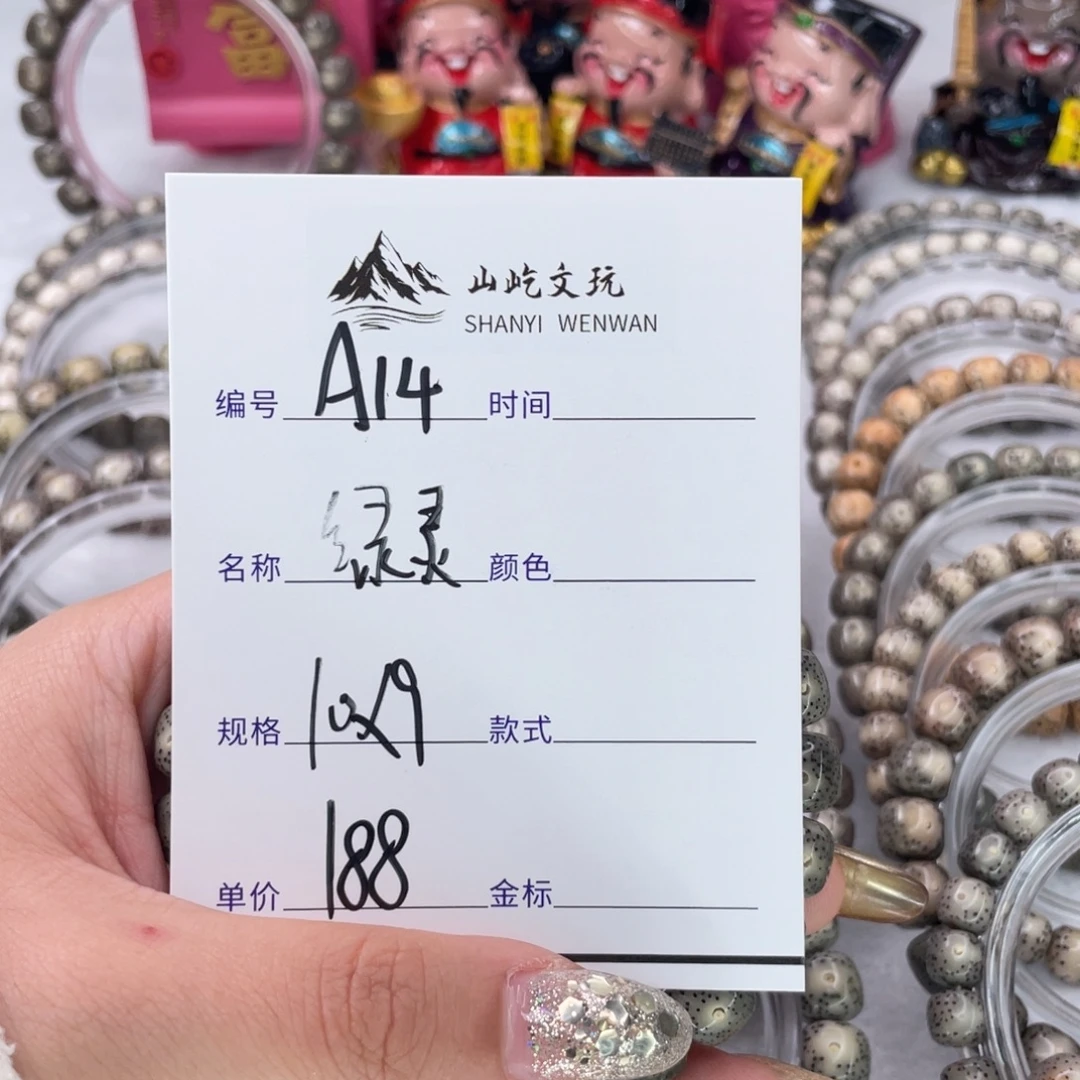 富
山屹文玩
SHANYI WENWAN
编号 A14 时间
名称 绿灵 颜色
规格 10x9 款式
单价 188 金标